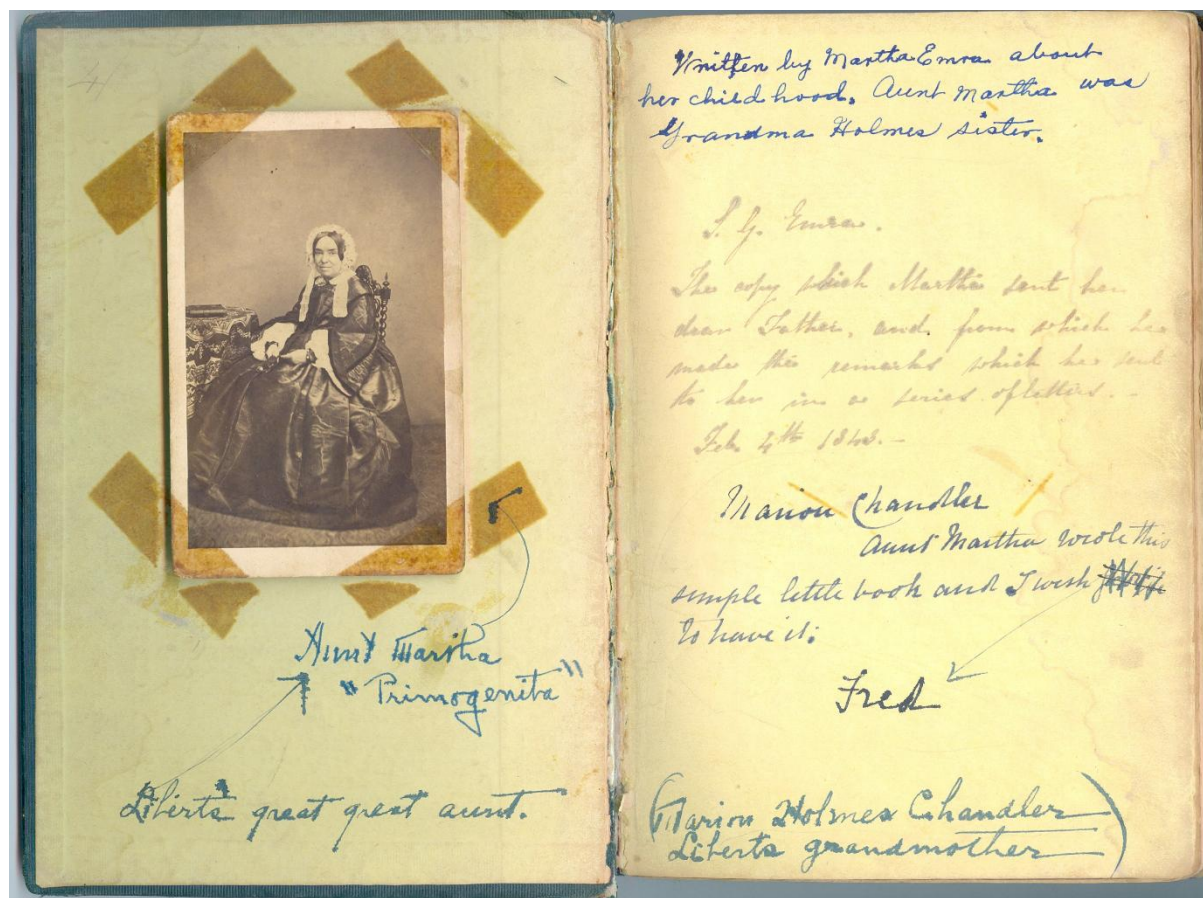 Aunt Martha
"Primogenita"
Liberta's great great aunt.
Written by Martha Emra about
her childhood. Aunt Martha was
Grandma Holmes sister.
S. G. Emra.
The copy which Martha sent her
dear Father, and from which he
made the remarks which he sent
to her in a series of letters. -
Feb. 4th 1843. -
Marion Chandler
Aunt Martha wrote this
simple little book and I wish
to have it.
Fred
(Marion Holmes Chandler
Liberta grandmother)